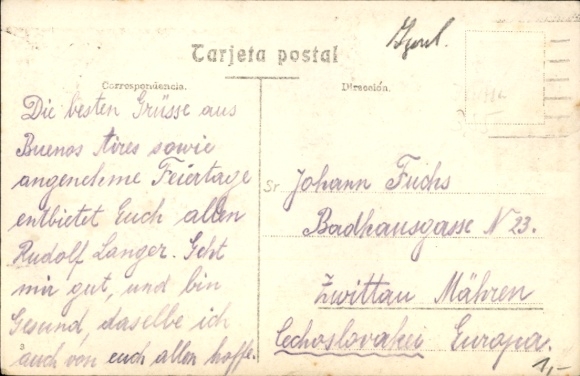 Tarjeta postal
Correspondencia.
Dirección.
Die besten Grüsse aus
Buenos Aires sowie
angenehme Feiertage
entbietet Euch allen
Rudolf Langer. Geht
mir gut, und bin
Gesund, daselbe ich
auch von euch allen hoffe.
3
Sr Johann Fuchs
Badhausgasse N 23.
Zwittau Mähren
Cechoslovakei Europa.
1,-